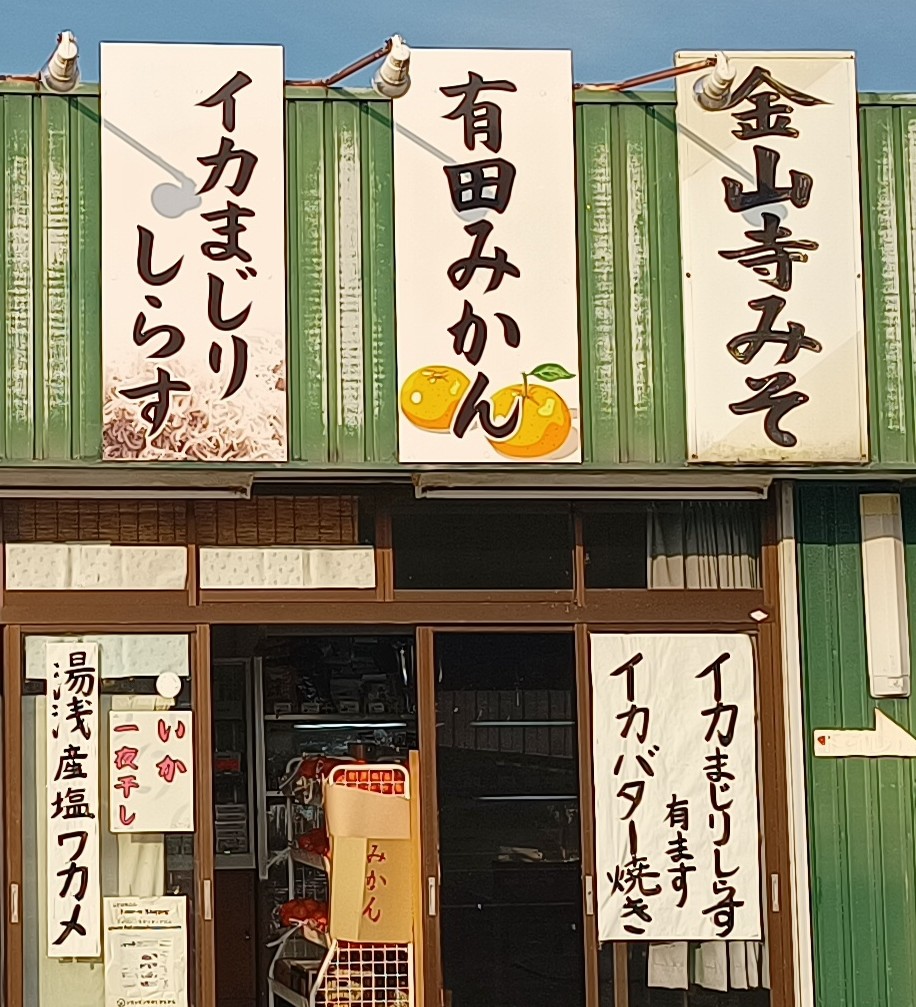 金山寺みそ
有田みかん
イカまじり
しらす
イカまじりしらす
有ます
イカバター焼き
みかん
いか
一夜干し
湯浅産塩ワカメ